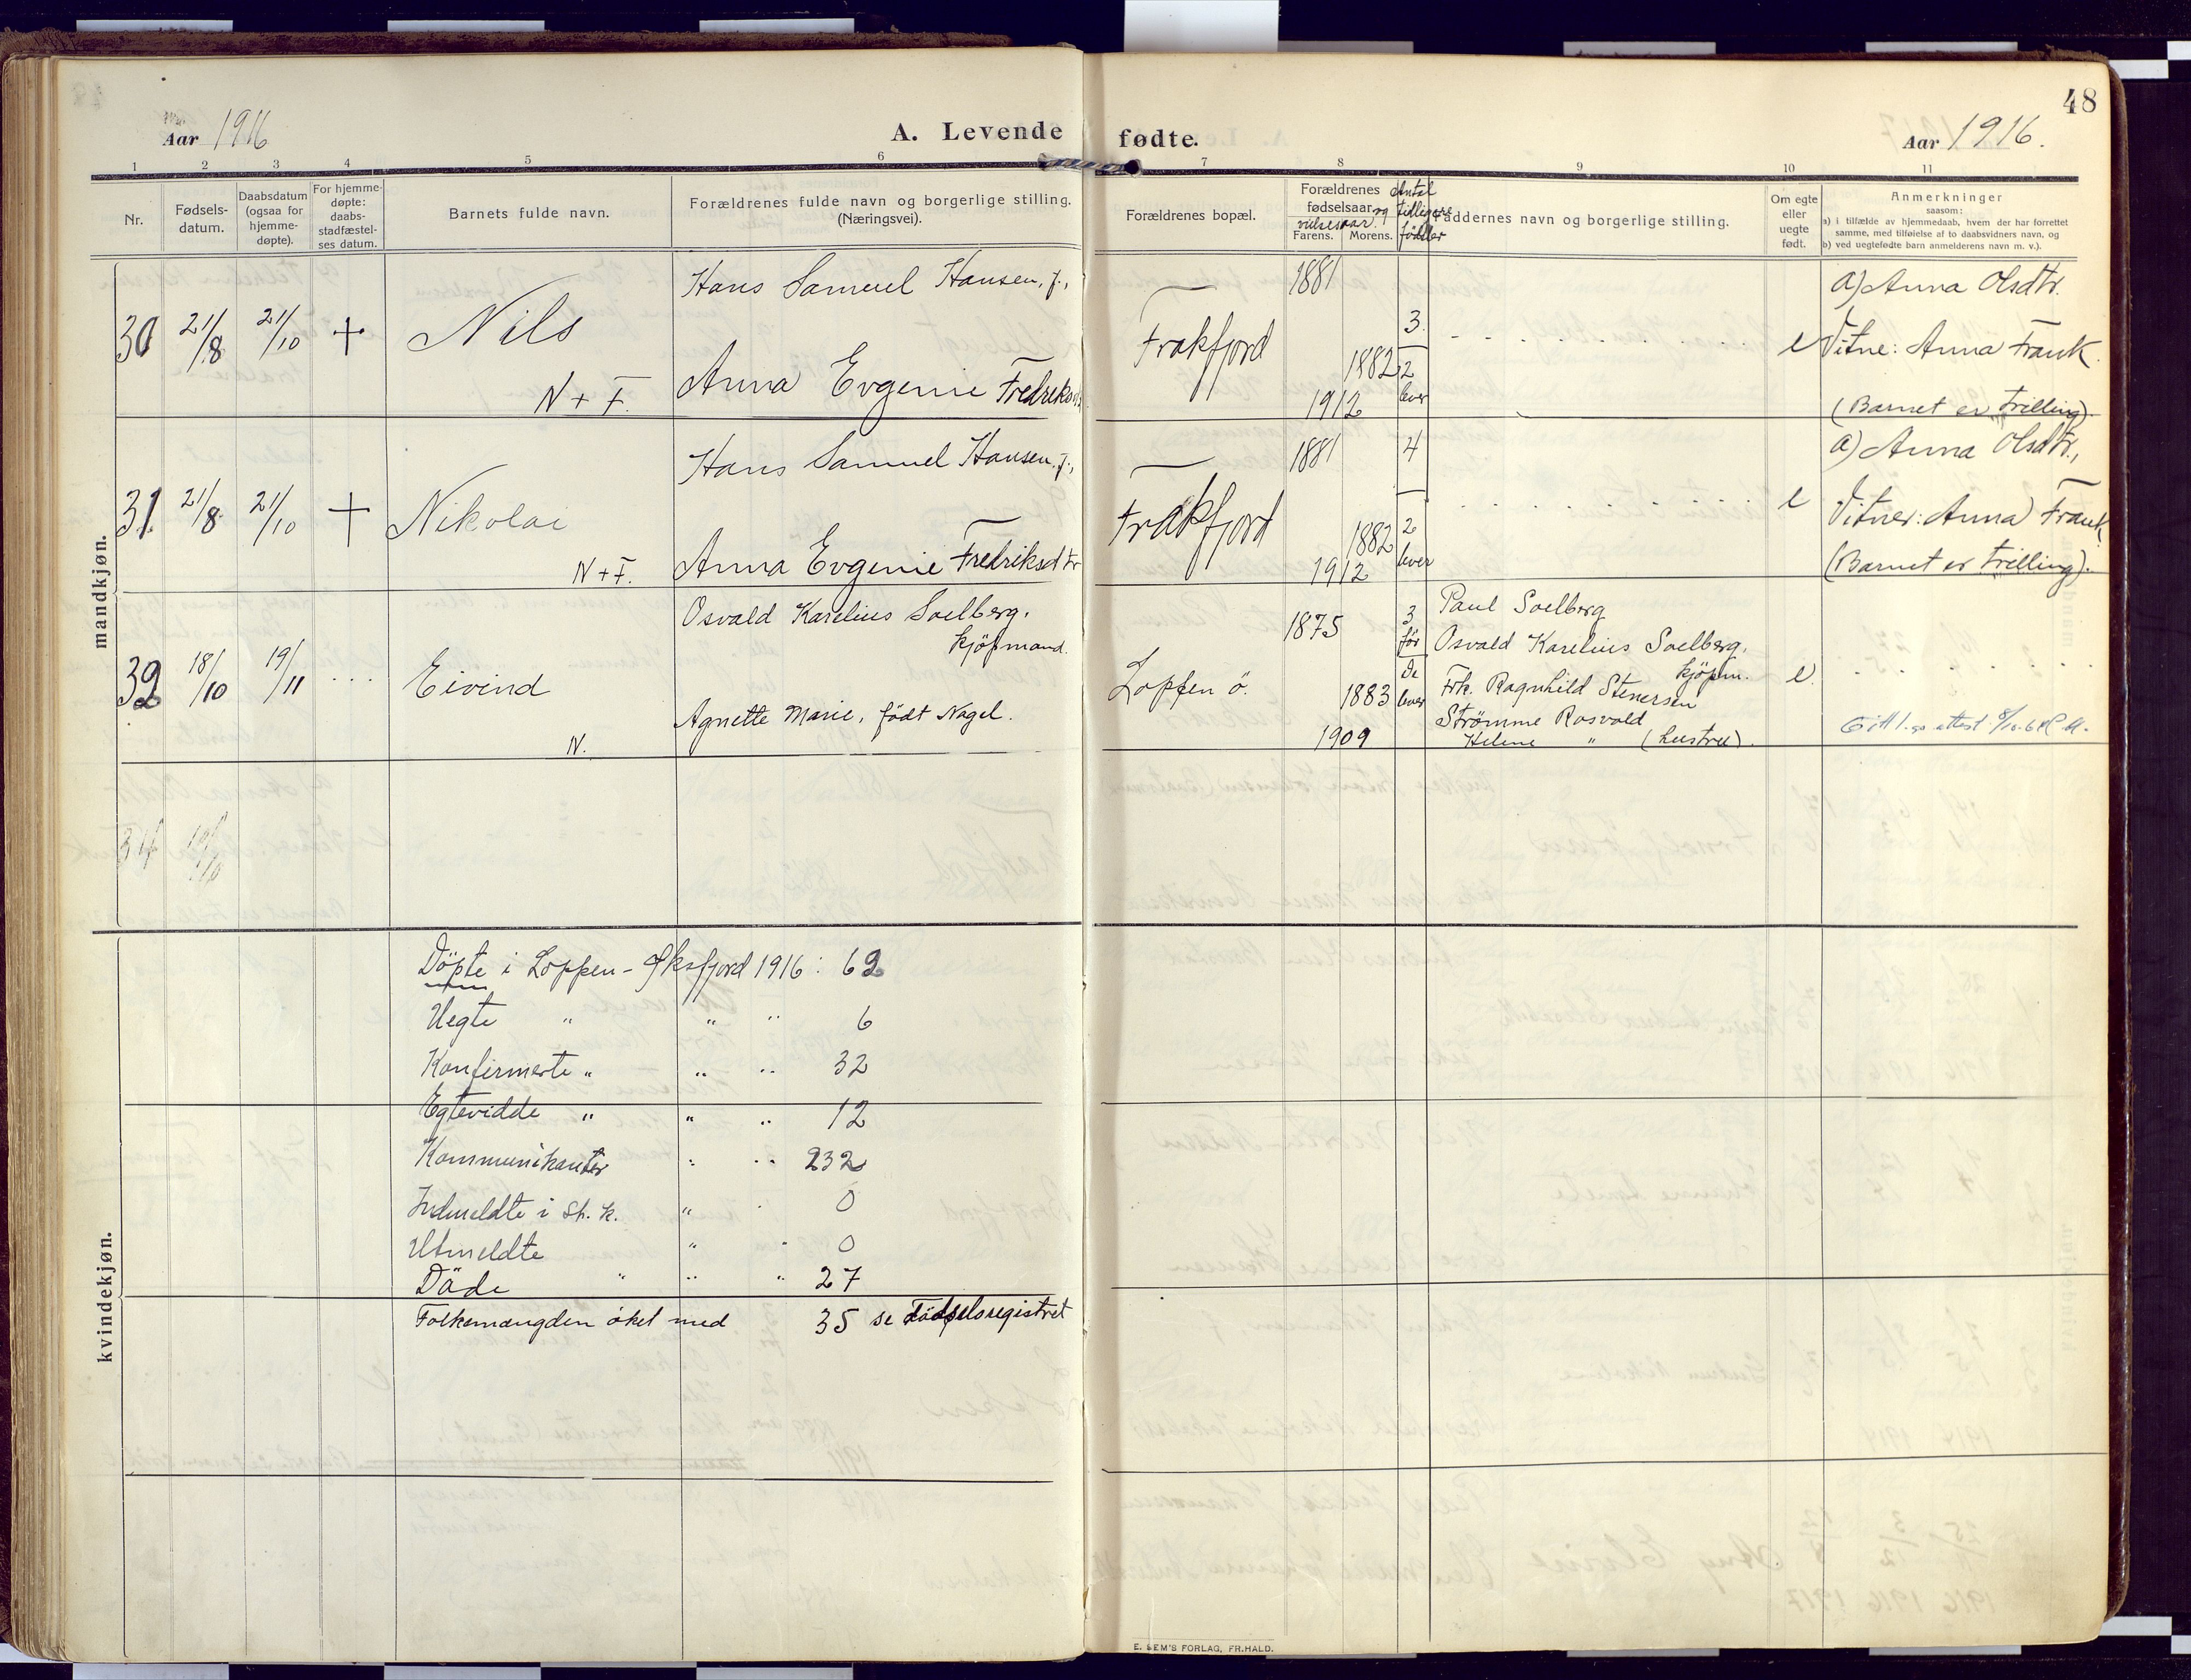 48
Aar 1916
A. Levende fødte.
Aar 1916.
1 2 3 4 5 6 7 8 9 10 11
Nr.
Fødsels-
datum.
Daabsdatum
(ogsaa for
hjemme-
døpte).
For hjemme-
døpte:
daabs-
stadfæstel-
ses datum.
Barnets fulde navn.
Forældrenes fulde navn og borgerlige stilling.
(Næringsvei).
Forældrenes bopæl.
Forældrenes
fødselsaar og
vielsesaar.
Farens. Morens.
Antal
tidligere
fødsler
Faddernes navn og borgerlige stilling.
Om egte
eller
uegte
født.
Anmerkninger
saasom:
a) i tilfælde av hjemmedaab, hvem der har forrettet
samme, med tilføielse af to daabsvidners navn, og
b) ved uegtefødte barn anmelderens navn m. v.).
mandkjøn.
30 21/8 21/10 + Nils
N + F.
Hans Samuel Hansen, f.,
Anna Evgenie Fredriksd
Frakfjord
1881
1882
1912
3
2
lever
e
a) Anna Olsdtr.
Vitne: Anna Frank.
(Barnet er trilling).
31. 21/8 21/10 + Nikolai
N + F.
Hans Samuel Hansen, f.,
Anna Evgenie Fredriksdtr
Frakfjord
1881
1882
1912
4
2
lever
e
a) Anna Olsdtr.,
Vitner: Anna Frank
(Barnet er trilling).
32 18/10 19/11 . . . Eivind
N.
Osvald Karelius Soelberg,
kjöpmand.
Agnette Marie, födt Nagel.
Loppen ö.
1875
1883
1909
3
før
de
lever
Paul Soelberg
Osvald Karelius Soelberg,
kjöpm.
Frk. Ragnhild Stenersen
Strømme Rosvold
Helene " (hustru).
e.
34 19/10
Döpte i Loppen - Øksfjord 1916: 62
Uegte " " " 6
Konfirmerte " " " 32
Egteviede " " " 12
Kommunikanter " " 232
Indmeldte i St. k. " " 0
Utmeldte " " 0
Döde " " " 27
Folkemængden öket med 35 se Födselsregistret
kvindekjøn.
E. SEM'S FORLAG, FR.HALD.